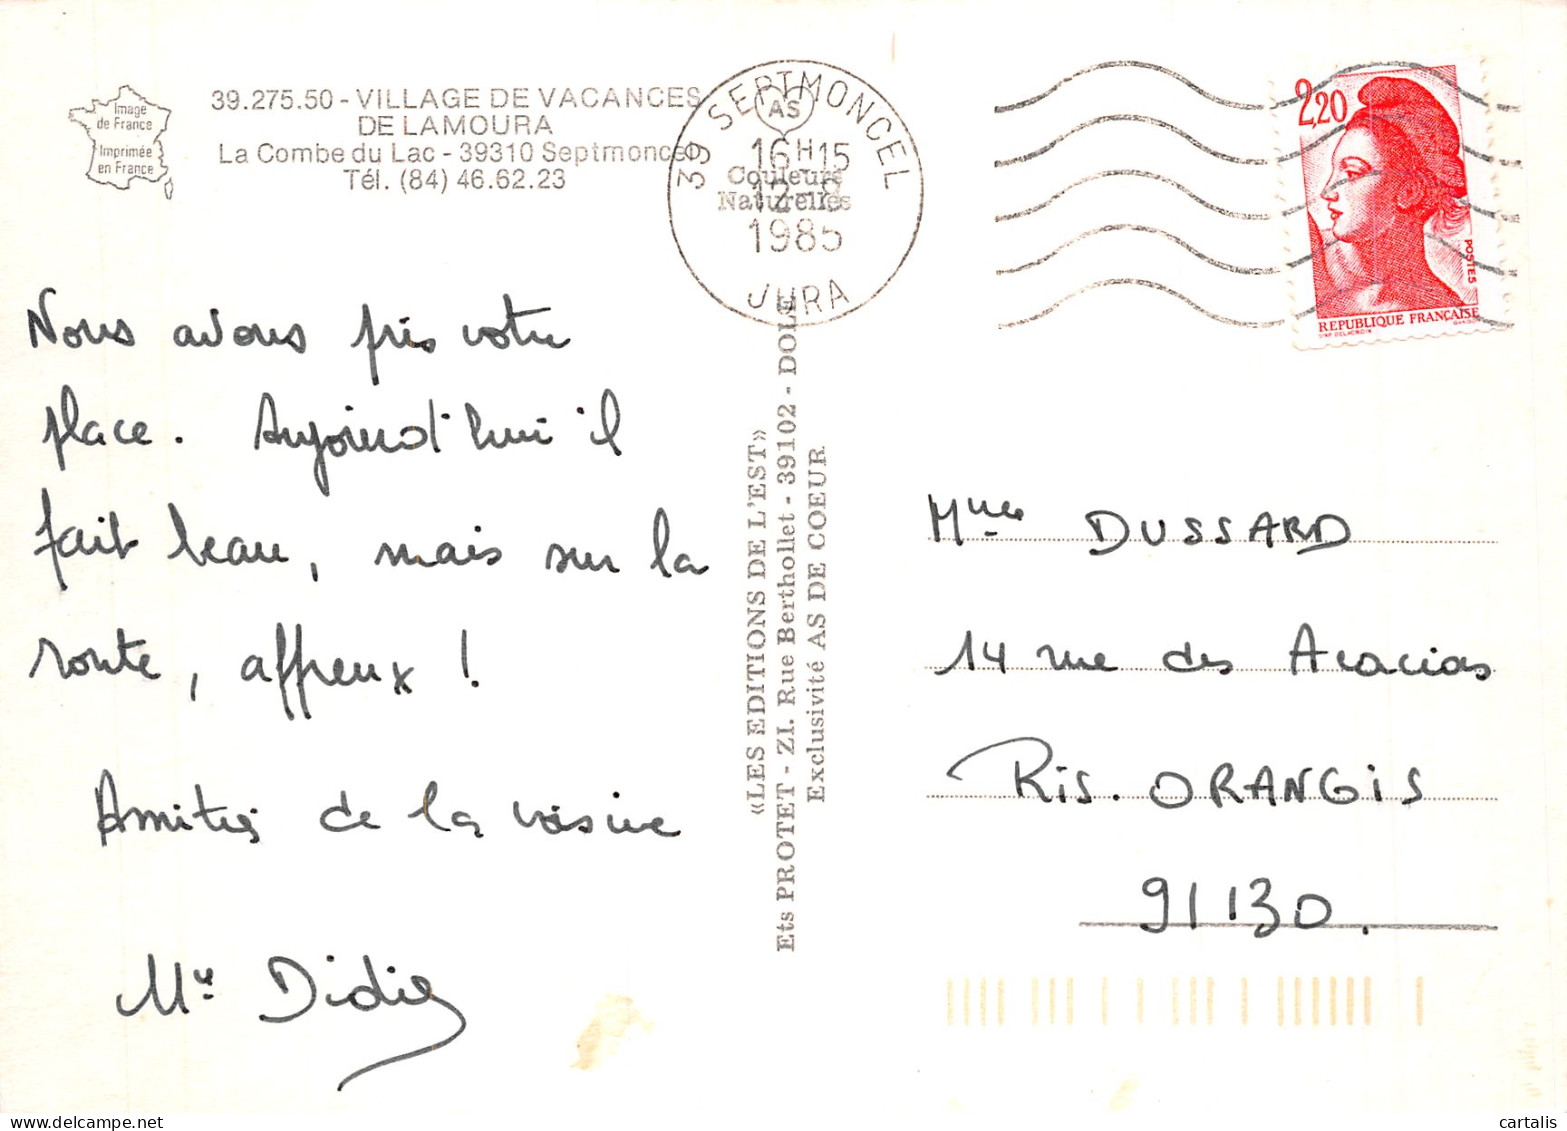 Image
de France
Imprimée
en France
39.275.50 - VILLAGE DE VACANCES
DE LAMOURA
La Combe du Lac - 39310 Septmoncel
Tél. (84) 46.62.23
AS
Couleurs
Naturelles
39 SEPTMONCEL
16H15
12-8
1985
JURA
2,20
POSTES
REPUBLIQUE FRANÇAISE
D'AP. DELACROIX GANDON
Nous avons pris votre
place. Aujourd'hui il
fait beau, mais sur la
route, affreux !
Amitiés de la voisine
«LES EDITIONS DE L'EST»
Ets PROTET - ZI. Rue Berthollet - 39102 - DOLE
Exclusivité AS DE COEUR
Mme DUSSARD
14 rue des Acacias
RIS. ORANGIS
91130.
cartalis